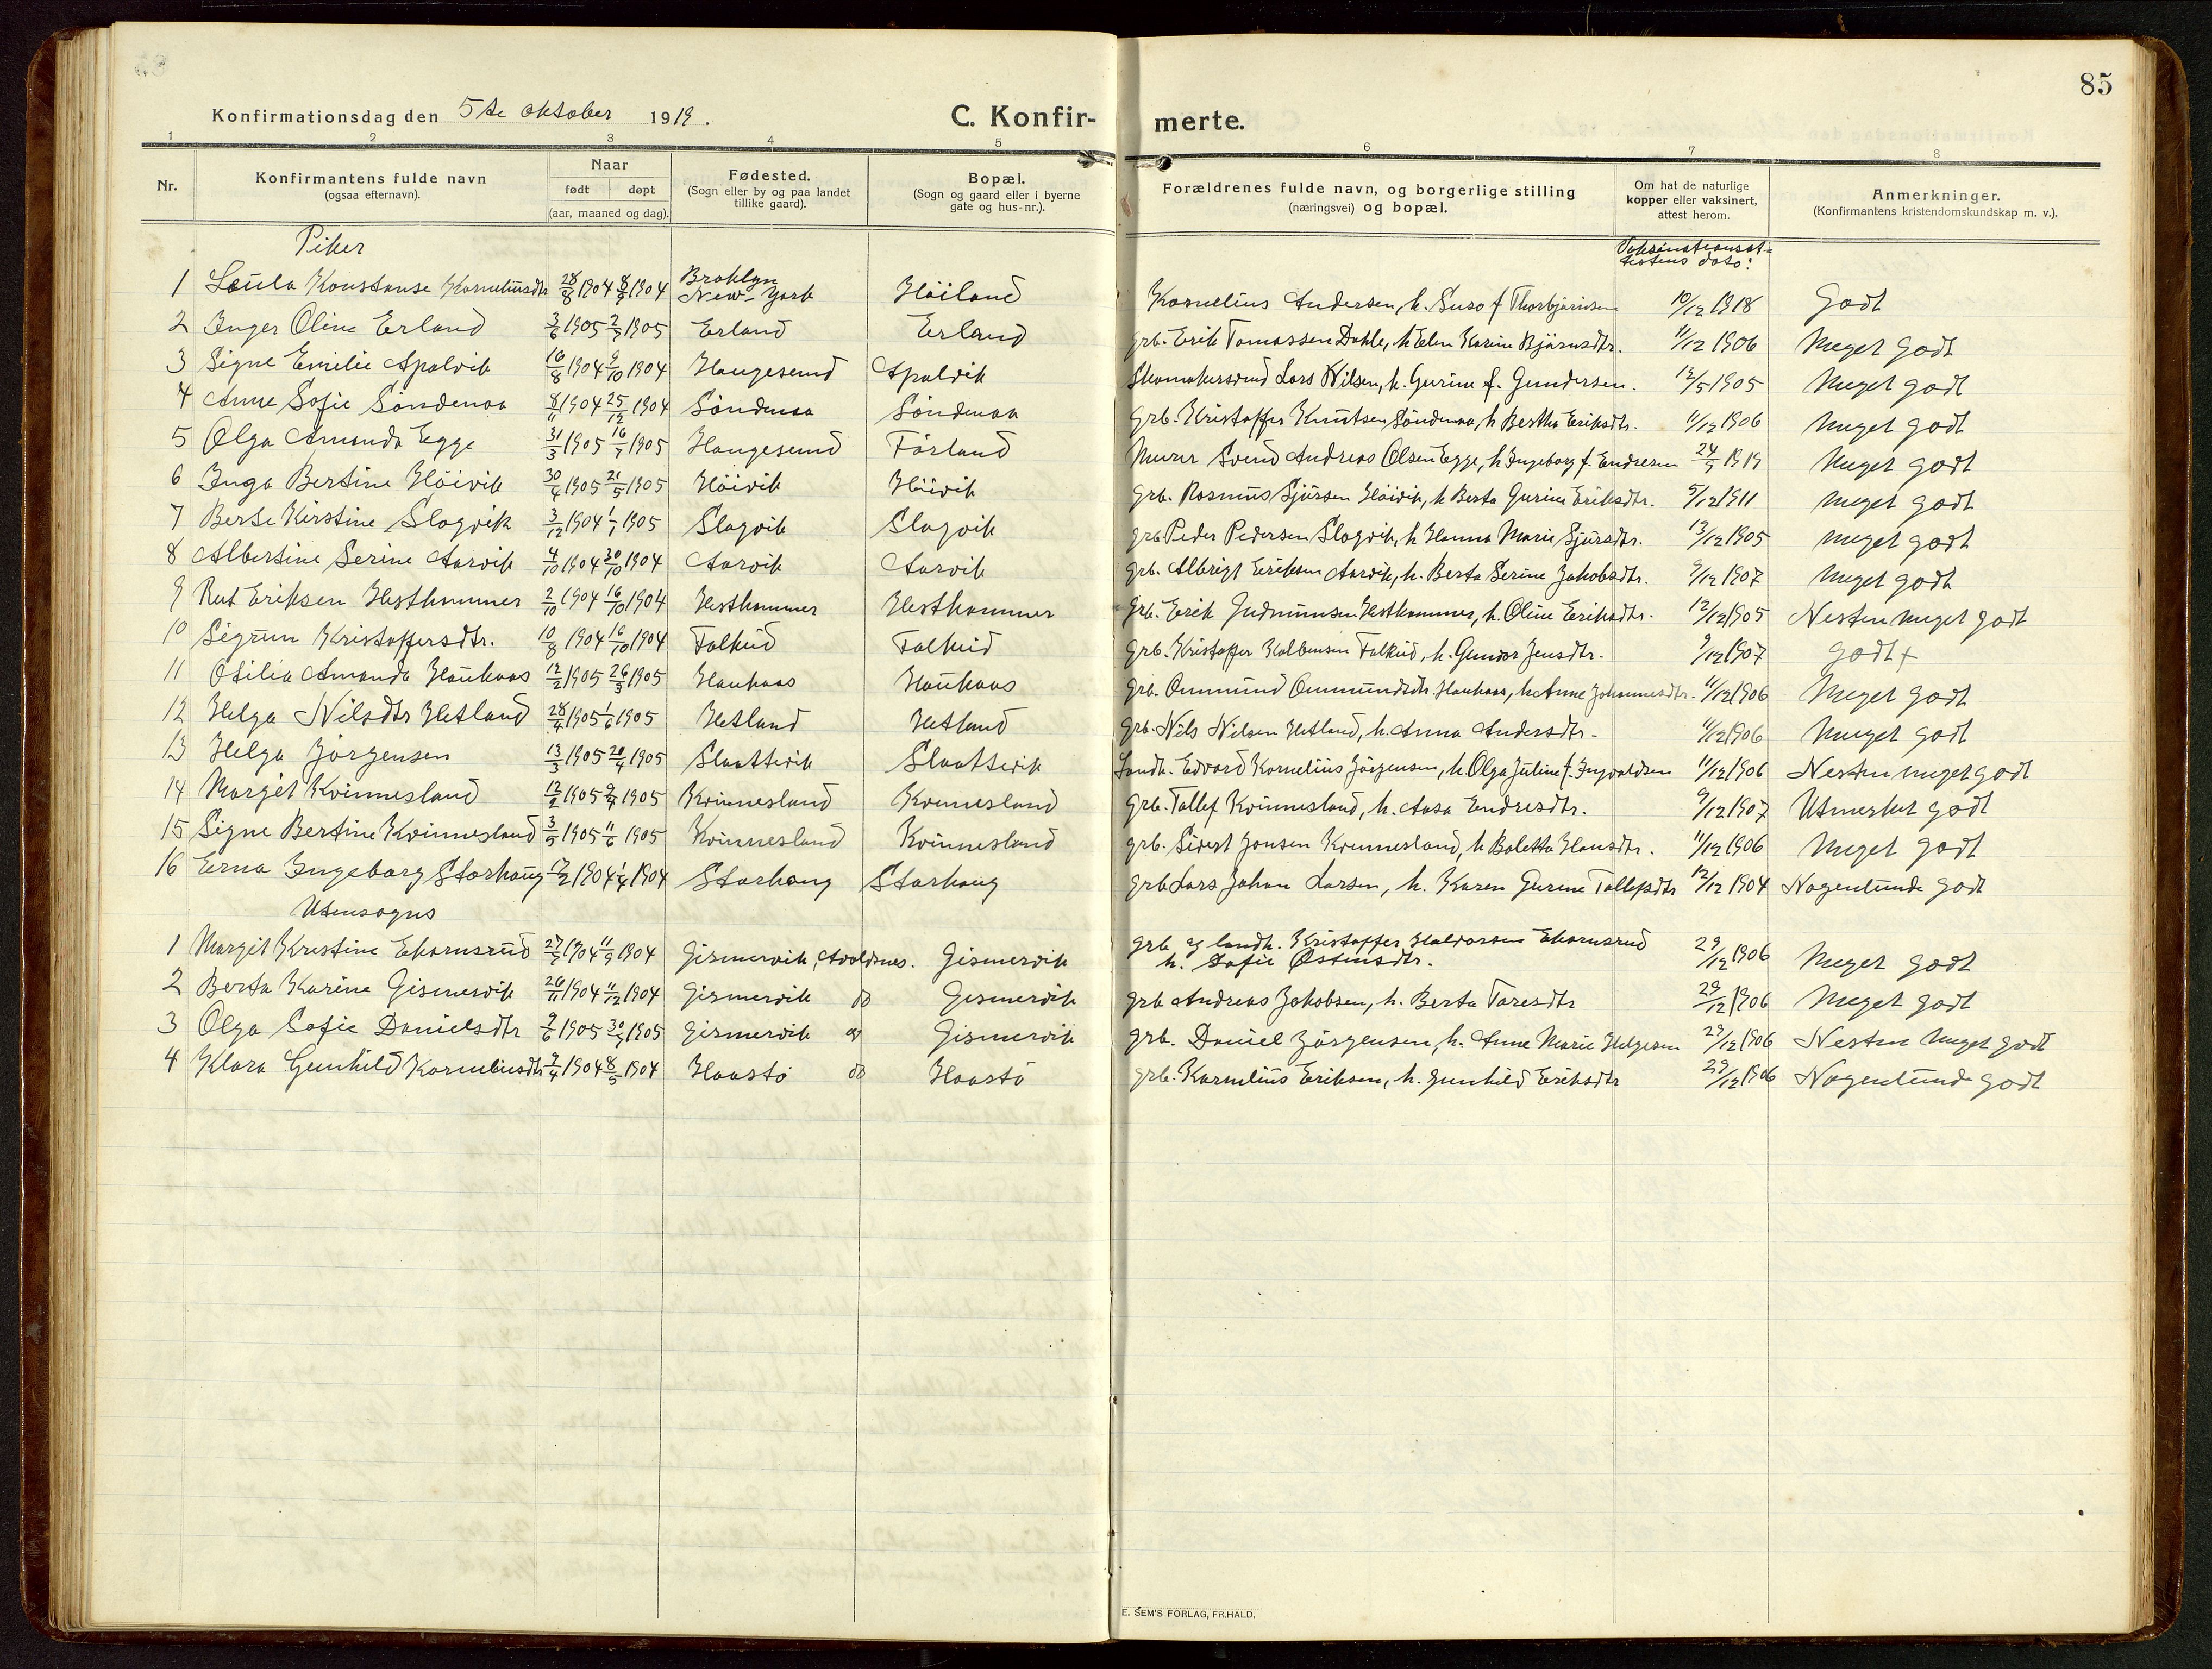 85
Konfirmationsdag den 5te oktober 1919.
C. Konfir- merte.
1 2 3 4 5 6 7 8
Nr. Konfirmantens fulde navn (ogsaa efternavn). Naar født døpt (aar, maaned og dag). Fødested. (Sogn eller by og paa landet tillike gaard). Bopæl. (Sogn og gaard eller i byerne gate og hus-nr.). Forældrenes fulde navn, og borgerlige stilling (næringsvei) og bopæl. Om hat de naturlige kopper eller vaksinert, attest herom. Anmerkninger. (Konfirmantens kristendomskundskap m. v.).
Piker Vaksinationsat-testens dato:
1 Laula Konstanse Korneliusdtr 28/8 1904 1904 Broklyn New-York Höiland Kornelius Andersen, h. f Thorbjörnsen 10/12 1918 Godt
2 Inger Oline Erland 3/6 1905 2/7 1905 Erland Erland grb. Erik Tomassen Dahle, h Elen Karine Bjørnsdtr. 11/12 1906 Meget godt
3 Signe Emilie Apalvik 16/8 1904 9/10 1904 Haugesund Apalvik Skomakersvend Lars Nilsen, h. Gurine f. Gundersen. 12/5 1905 Meget godt
4 Anne Sofie Söndenaa 8/11 1904 25/12 1904 Söndenaa Söndenaa Grb. Kristoffer Knutsen Söndenaa, h Bertha Eriksdtr. 11/12 1906 Meget godt
5 Olga Amanda Egge 31/3 1905 16/7 1905 Haugesund Förland Murer Svend Andreas Olsen Egge, h Ingeborg f. Endresen 24/9 1919 Meget godt
6 Inga Bertine Höivik 30/4 1905 21/5 1905 Höivik Höivik grb. Rasmus Sjursen Höivik, h Berta Gurine Eriksdtr. 5/12 1911 Meget godt
7 Berte Kirstine Slogvik 3/12 1904 1/1 1905 Slogvik Slogvik grb Peder Pedersen Slogvik, h Hanna Marie Sjursdtr. 13/12 1905 meget godt
8 Albertine Serine Aarvik 4/10 1904 30/10 1904 Aarvik Aarvik grb. Albrigt Eriksen Aarvik, h. Berta Serine Jakobsdtr. 9/12 1907 Meget godt
9 Rut Eriksen Hesthammer 2/10 1904 16/10 1904 Hesthammer Hesthammer Grb. Erik Gudmunsen Hesthammer, h. Oline Eriksdtr. 12/12 1905 Nesten meget godt
10 Sigrun Kristoffersdtr. 10/8 1904 16/10 1904 Falkeid Falkeid Grb. Kristoffer Kolbensen Falkeid, h. Gunvor Jensdtr. 9/12 1907 godt +
11 Otilia Amanda Haukaas 12/2 1905 26/3 1905 Haukaas Haukaas grb. Ommund Ommundsdtr. Haukaas, h Anne Johannesdtr. 11/12 1906 Meget godt
12 Helga Nilsdtr Hetland 28/4 1905 1/6 1905 Hetland Hetland grb. Nils Nilsen Hetland, h. Anna Andersdtr. 11/12 1906 Meget godt
13 Helga Jörgensen 13/3 1905 20/4 1905 Slaattevik Slaattevik Landh. Edvard Kornelius Jörgensen, h Olga Juline f. Ingvaldsen 11/12 1906 Nesten meget godt
14 Margit Kvinnesland 12/2 1905 1905 Kvinnesland Kvinnesland Grb. Tollef Kvinnesland, h. Aasa Endresdtr. 9/12 1907 Utmerket godt
15 Signe Bertine Kvinnesland 3/5 1905 11/6 1905 Kvinnesland Kvinnesland grb. Sivert Jonsen Kvinnesland, h Baletta Hansdtr. 11/12 1906 Meget godt
16 Erna Ingeborg Storhaug 17/2 1904 1/4 1904 Storhaug Storhaug grb Lars Johan Larsen, h. Karen Gurine Tollefsdtr 12/12 1904 Nogenlunde godt
Utensogns
1 Margit Kristine Ekornsrud 1904 11/9 1904 Gismervik, Avaldsnes. Gismervik grb. og landh. Kristoffer Halvorsen Ekornsrud h. Sofie Østensdtr. 29/12 1906 Meget godt
2 Berta Karine Gismervik 26/11 1904 11/12 1904 Gismervik do Gismervik grb Andreas Jakobsen, h. Berta Taresdtr 29/12 1906 Meget godt
3 Olga Sofie Danielsdtr 9/6 1905 1905 Gismervik do Gismervik grb. Daniel Jörgensen, h. Anne Marie Helgesen 29/12 1906 Nesten meget godt
4 Klara Gunhild Korneliusdtr 1904 8/5 1904 Haastö do Haastö grb. Kornelius Eriksen, h. Gunhild Eriksdtr 29/12 1906 Nogenlunde godt
E. SEM'S FORLAG, FR.HALD.